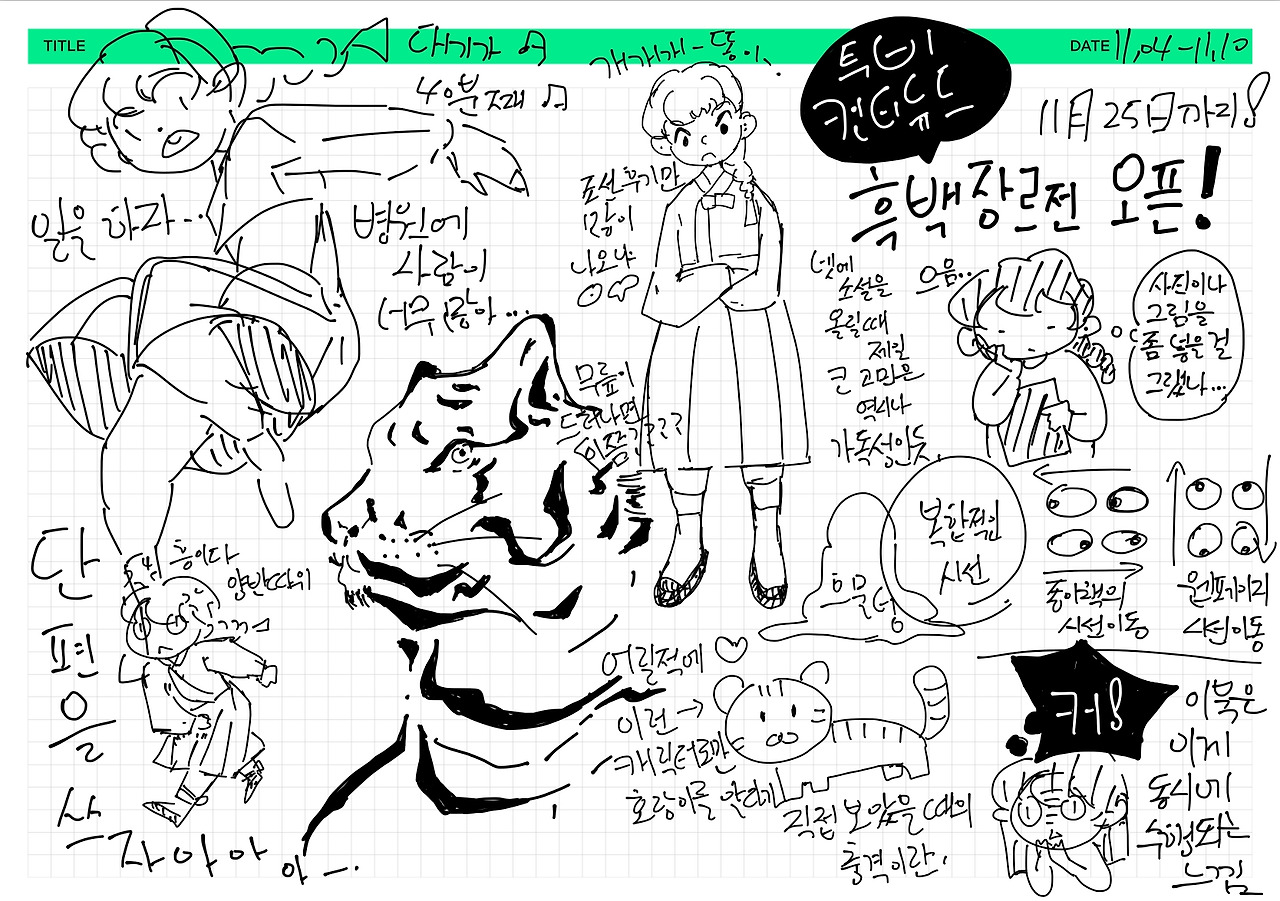 TITLE
대기가
40분째
일을 하자...
병원에
사람이
너무 많아...
개가가-똥이.
조선후기만
많이
나오냐
무릎이
드러나면
DATE 11.04-11.10
투비
컨티뉴드
11月 25日까리!
흑백장르전 오픈!
넷에
소설을
올릴때
제일
큰 고민은
역시나
가독성인듯.
으음..
사진이나
그림을
좀 넣을 걸
그랬나...
흐물텅
복합적인
시선
종이책의
시선이동
원페이지
시선이동
단
편
을
사
자아아
아-.
흥이다
양반따위
어릴적에
이런→
캐릭터로만
호랑이를 알다가
직접 보았을 때의
충격이란.
커!
이북은
이게
동시에
수행되는
느낌